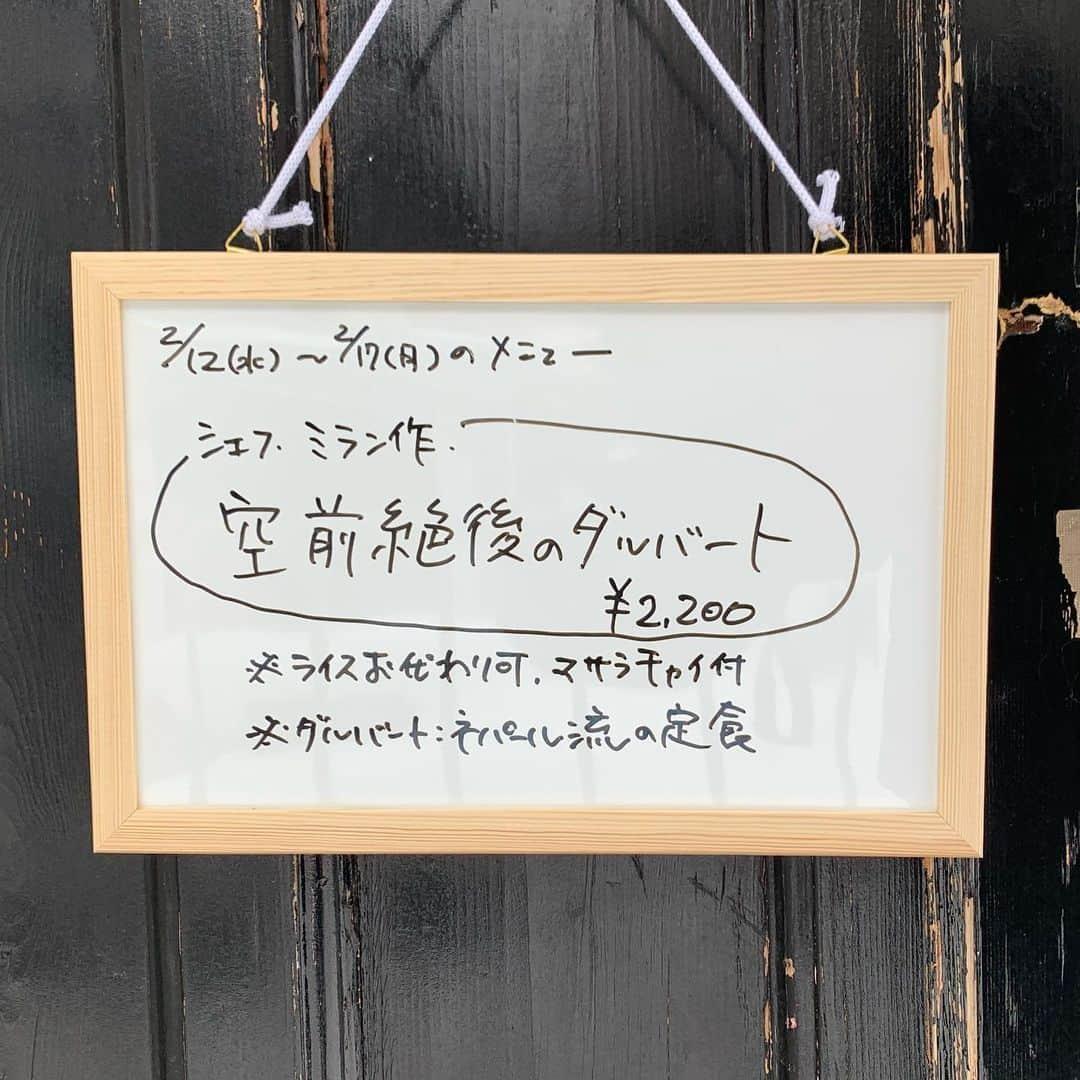 2/12(水)～2/17(月)のメニュー
シェフ.ミラン作.
空前絶後のダルバート
¥2,200
※ライスお代わり可.マサラチャイ付
※ダルバート:ネパール流の定食